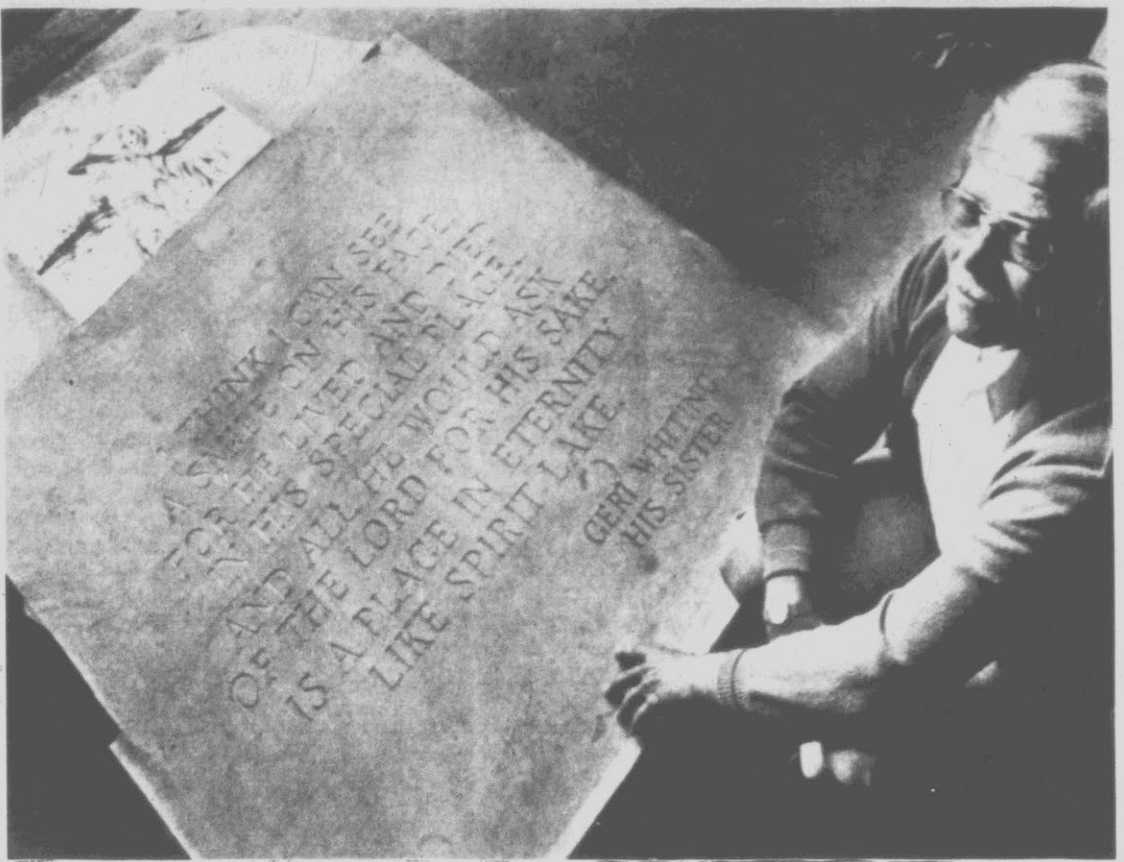 I THINK I CAN SEE
A SMILE ON HIS FACE
FOR HE LIVED AND DIED
IN HIS SPECIAL PLACE.
AND ALL HE WOULD ASK
OF THE LORD FOR HIS SAKE,
IS A PLACE IN ETERNITY
LIKE SPIRIT LAKE.
GERI WHITING
HIS SISTER